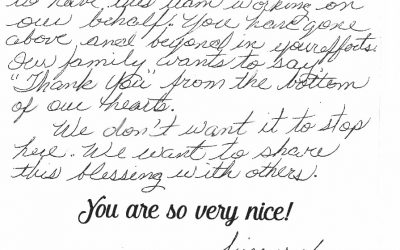 to have this team working on
our behalf. You have gone
above and beyond in your efforts.
Our family wants to say
"Thank You" from the bottom
of our hearts.
We don't want it to stop
here. We want to share
this blessing with others.
You are so very nice!